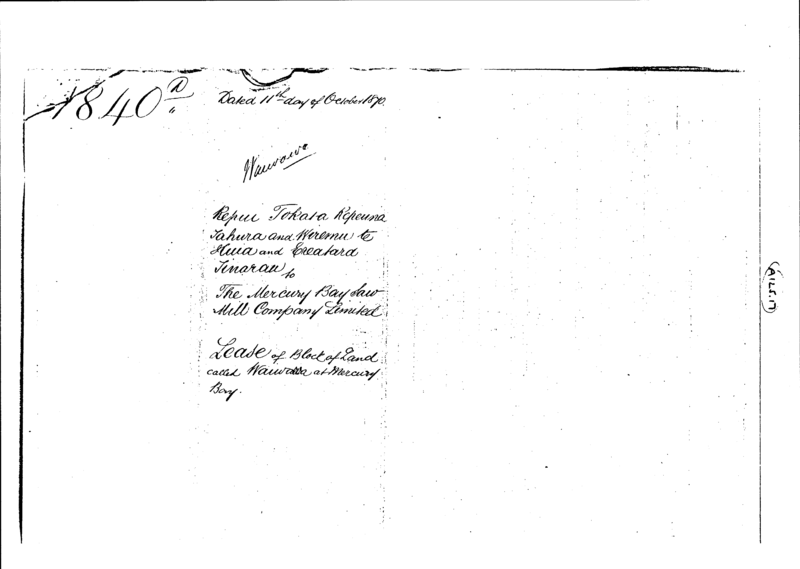 1840 D
Dated 11th day of October 1870.
Waiwawa
Repui Tokata Repeuna
Tahura and Wiremu te
Huia and Ereatara
Tinarau to
The Mercury Bay Saw
Mill Company Limited
Lease of Block of Land
called Waiwawa at Mercury
Bay.